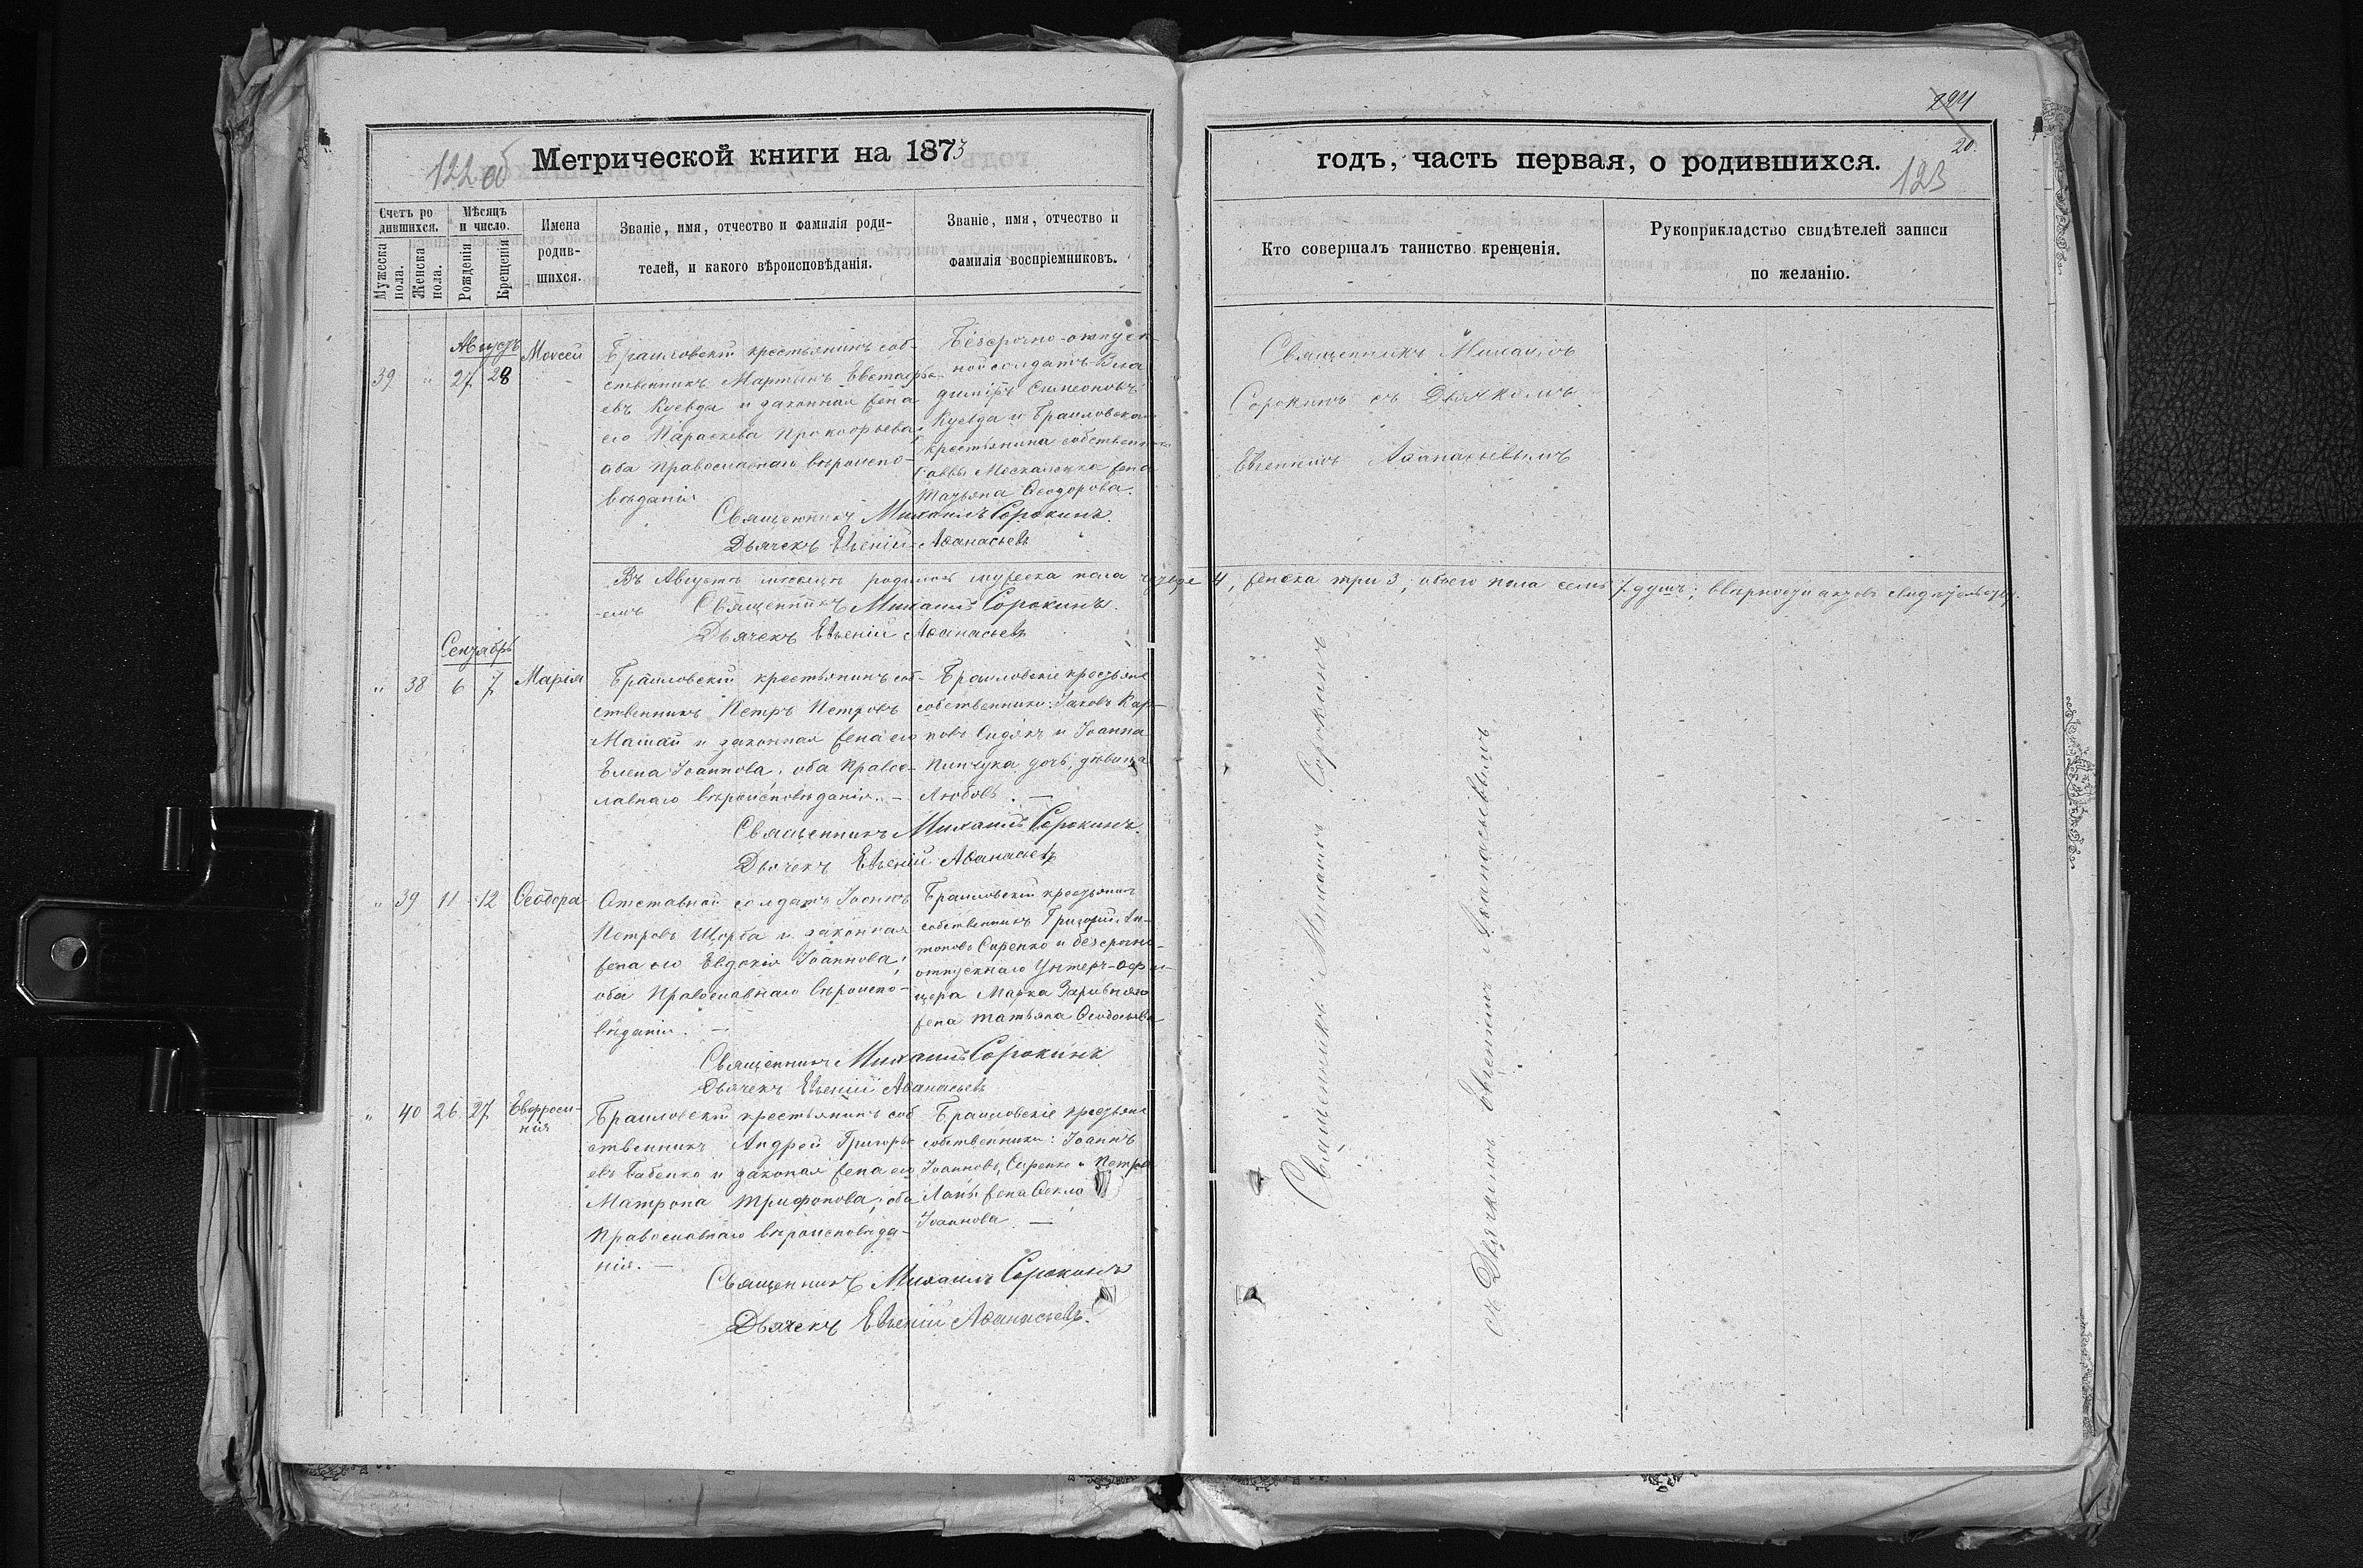 122 об
Метрической книги на 1873
Счетъ родившихся.
Мѣсяцъ и число.
Мужеска пола.
Женска пола.
Рожденія
Крещенія
Имена родившихся.
Званіе, имя, отчество и фамилія родителей, и какого вѣроисповѣданія.
Званіе, имя, отчество и фамилія воспріемниковъ.
Августъ
39 " 27 28
Моѵсей
Браиловскій крестьянинъ соб-
ственникъ Мартынъ Евстафьевъ
Куевда и законная жена
его Параскева Прокофьева,
оба православнаго вѣроиспо-
вѣданія
Безсрочно-отпуск-
ной солдатъ Вла-
диміръ Симеоновъ
Куевда и Браиловска
крестьянина собственника
Саввы Москаленка жена
Татьяна Ѳеодорова.
Священникъ Михаилъ Сорокинъ.
Дьячекъ Евгеній Аѳанасьевъ
Въ Августѣ мѣсяцѣ родилось мужеска пола четыре 4, женска три 3, обоего пола семь 7 душъ; въ вѣрности актовъ свидѣтельству-
емъ Священникъ Михаилъ Сорокинъ.
Дьячекъ Евгеній Аѳанасьевъ
Сентябрь
" 38 6 7
Марія
Браиловскій крестьянинъ соб-
ственникъ Петръ Петровъ
и законная жена его
Елена Іоаннова, оба Правос-
лавнаго вѣроисповѣданія. —
Браиловскіе крестьяне
собственники: Іаковъ Кар-
повъ Сидякъ и Іоанна
Пинчука дочь, дѣвица
Любовь. —
Священникъ Михаилъ Сорокинъ.
Дьячекъ Евгеній Аѳанасьевъ
" 39 11 12
Ѳеодора
Отставной солдатъ Іоаннъ
Петровъ Щерба и законная
жена его Евдокія Іоаннова;
оба Православнаго вѣроиспо-
вѣданія. —
Браиловскій крестьянинъ
собственникъ Григорій Ан-
тоновъ Сиренко и безсрочно-
отпускнаго Унтеръ-Офи-
цера Марка
жена Татьяна Ѳеодосіева
Священникъ Михаилъ Сорокинъ
Дьячекъ Евгеній Аѳанасьевъ
" 40 26 27
Евфроси-
нія
Браиловскій крестьянинъ соб
ственникъ Андрей Григорь-
евъ Бабенко и законая жена его
Матрона Трифонова; оба
Православнаго вѣроисповѣда-
нія. —
Браиловскіе крестьяне
собственники: Іоаннъ
Іоанновъ Сиренко и Петра
жена Ѳекла
Іоаннова. —
Священникъ Михаилъ Сорокинъ
Дьячекъ Евгеній Аѳанасьевъ.
294
20.
123
годъ, часть первая, о родившихся.
Кто совершалъ таинство крещенія.
Рукоприкладство свидѣтелей записи по желанію.
Священникъ Михаилъ
Сорокинъ съ Дьячкомъ
Евгеніемъ Аѳанасьевымъ
Священникъ Михаилъ Сорокинъ
съ Дьячкомъ Евгеніемъ Аѳанасьевымъ